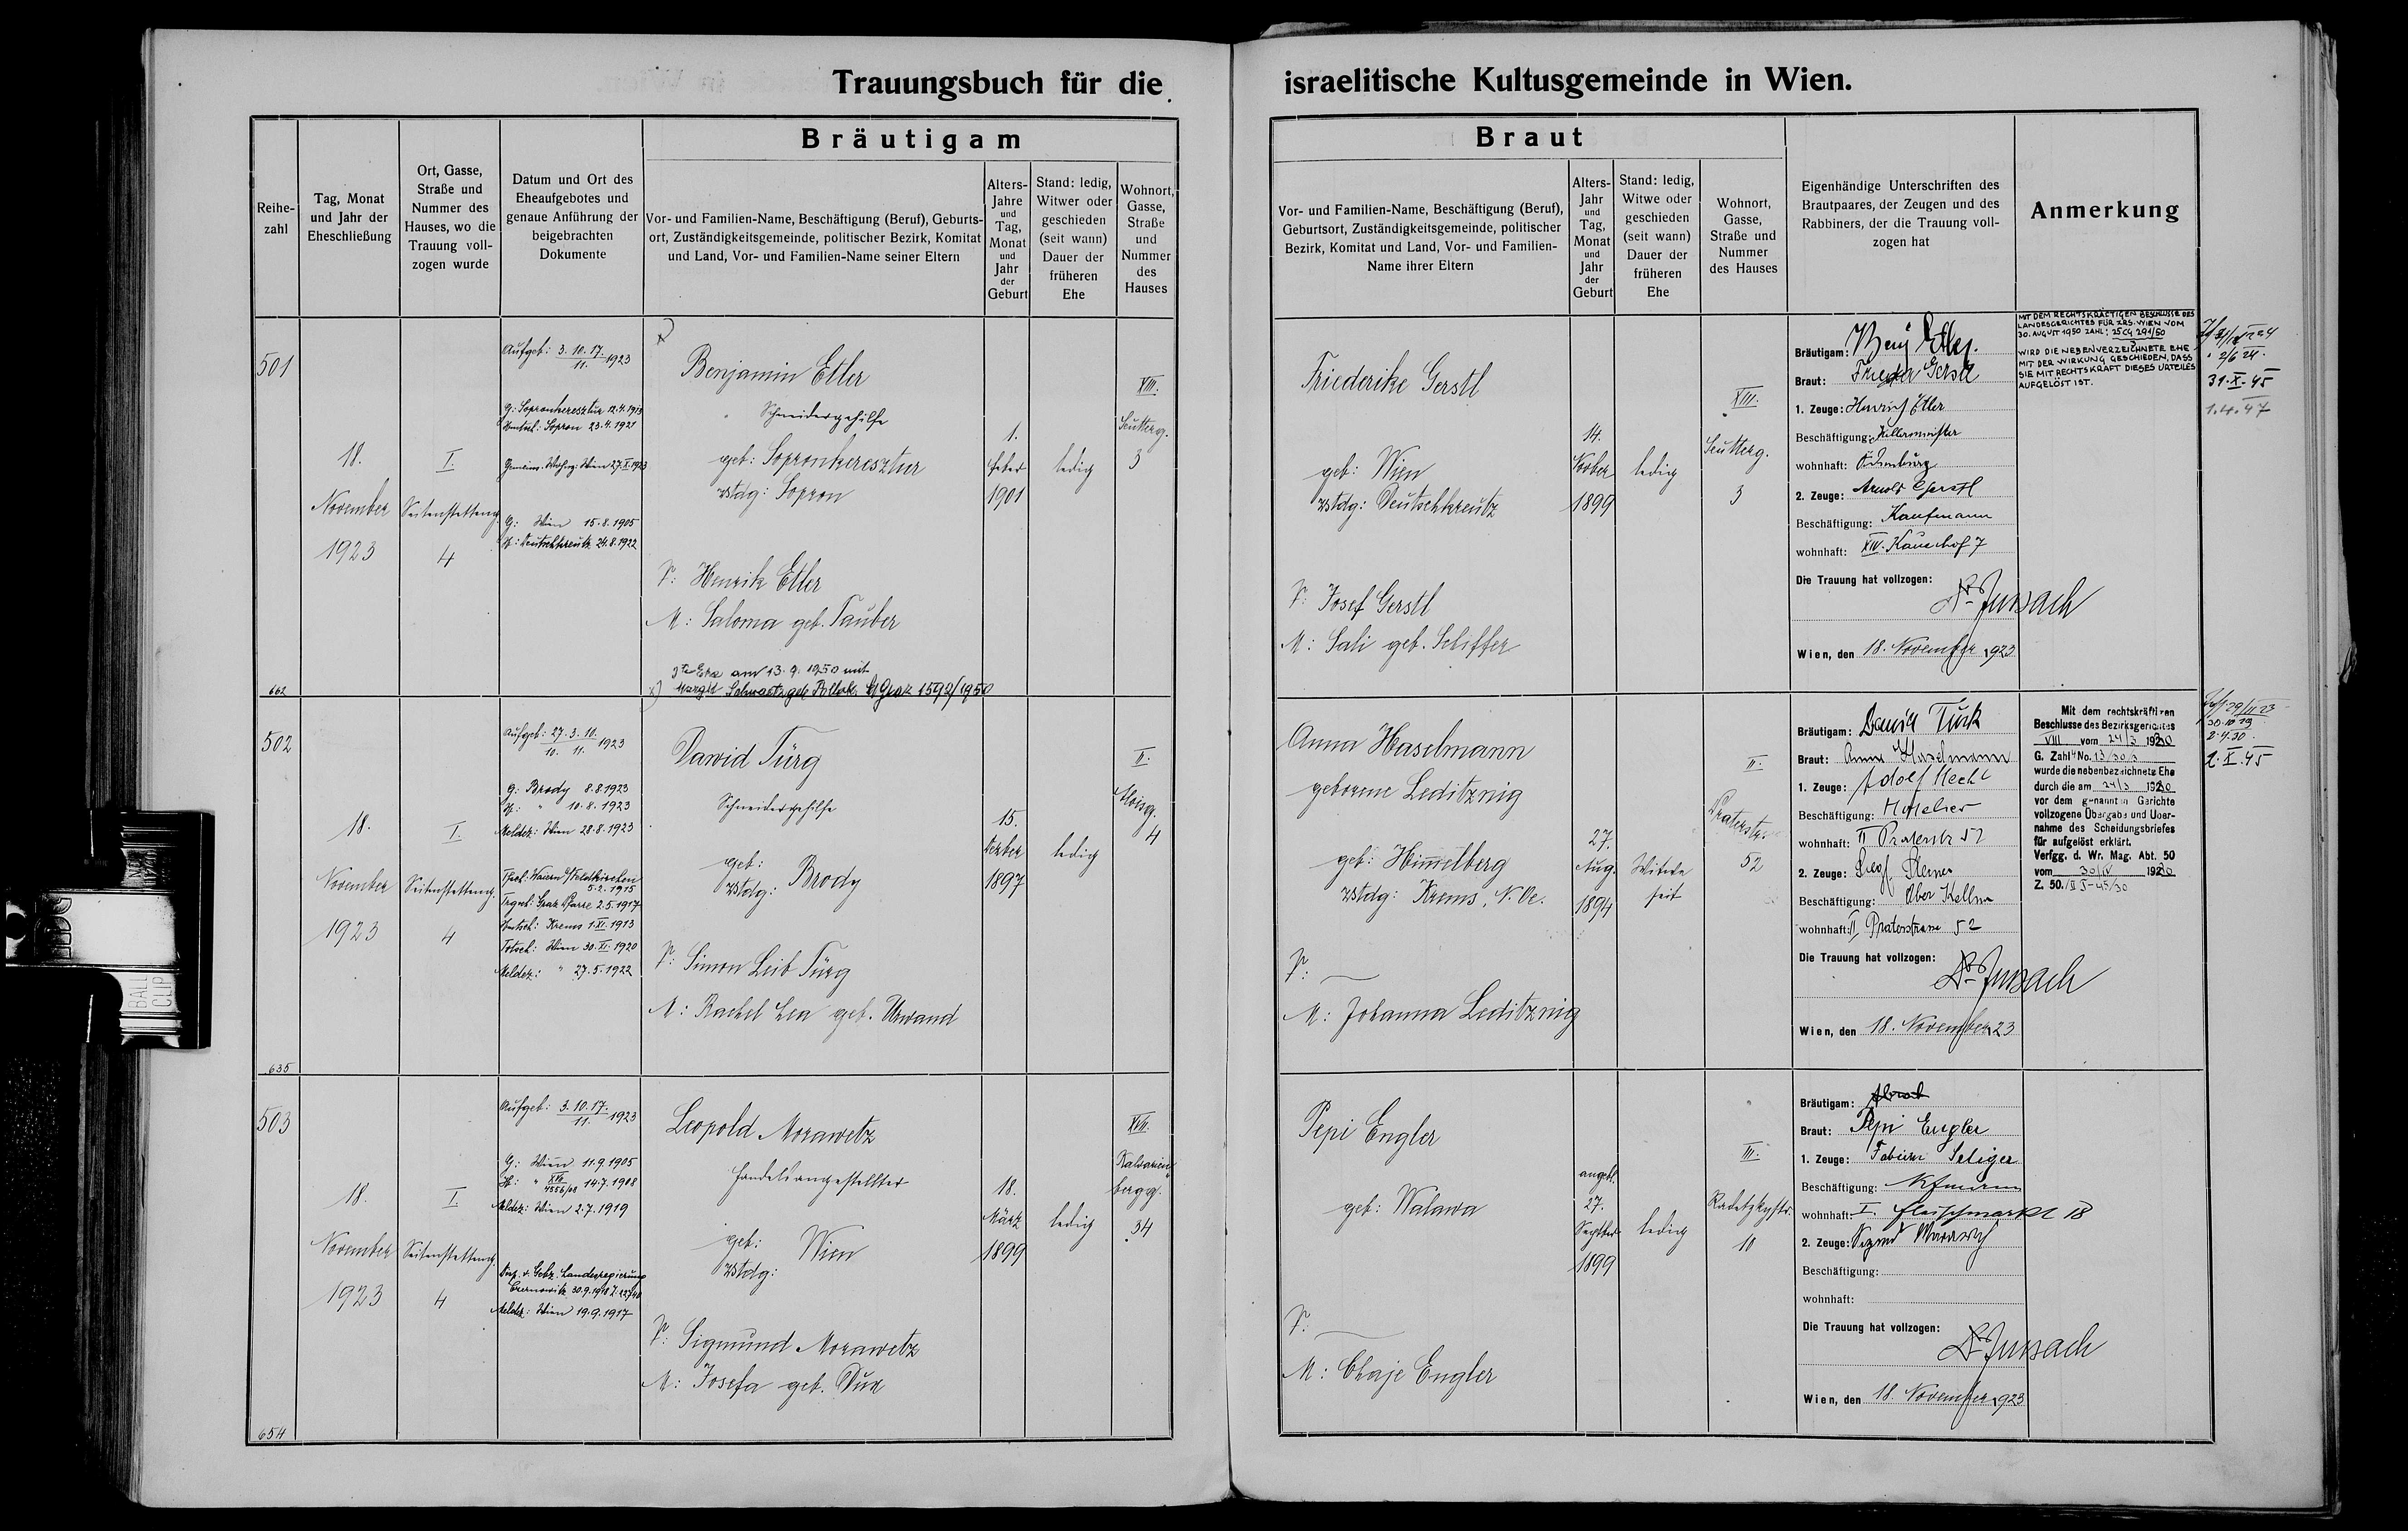 Trauungsbuch für die israelitische Kultusgemeinde in Wien.
Bräutigam
Reihe-
zahl
Tag, Monat
und Jahr der
Eheschließung
Ort, Gasse,
Straße und
Nummer des
Hauses, wo die
Trauung voll-
zogen wurde
Datum und Ort des
Eheaufgebotes und
genaue Anführung der
beigebrachten
Dokumente
Vor- und Familien-Name, Beschäftigung (Beruf), Geburts-
ort, Zuständigkeitsgemeinde, politischer Bezirk, Komitat
und Land, Vor- und Familien-Name seiner Eltern
Alters-
Jahre
und
Tag,
Monat
und
Jahr
der
Geburt
Stand: ledig,
Witwer oder
geschieden
(seit wann)
Dauer der
früheren
Ehe
Wohnort,
Gasse,
Straße
und
Nummer
des
Hauses
Braut
Vor- und Familien-Name, Beschäftigung (Beruf),
Geburtsort, Zuständigkeitsgemeinde, politischer
Bezirk, Komitat und Land, Vor- und Familien-
Name ihrer Eltern
Alters-
Jahr
und
Tag,
Monat
und
Jahr
der
Geburt
Stand: ledig,
Witwe oder
geschieden
(seit wann)
Dauer der
früheren
Ehe
Wohnort,
Gasse,
Straße und
Nummer
des Hauses
Eigenhändige Unterschriften des
Brautpaares, der Zeugen und des
Rabbiners, der die Trauung voll-
zogen hat
Anmerkung
501
18.
November
1923
I.
Seitenstetteng.
4
Aufgeb: 3. 10. 17. 1923
11.
G: Sopronkeresztur 12.4.1913
Sopron 23.4.1921
Wien 27.X.1923
G: Wien 15.8.1905
H: Deutschkreutz 24.8.1922
Benjamin Etler
Schneidergehilfe
geb: Sopronkeresztur
zstdg: Sopron
V: Henrik Etler
M: Saloma geb. Tauber
2te Ehe am 13.9.1950 mit
Margit Schwartz geb. Pollak 1592/1950
1.
Feber
1901
ledig
XIII.
Seutterg.
3
662
Friederike Gerstl
geb: Wien
zstdg: Deutschkreutz
V: Josef Gerstl
M: Sali geb. Schiffer
14.
Novber
1899
ledig
XIII.
Seutterg.
3
Bräutigam: Benj Etler
Braut: Frieda Gerstl
1. Zeuge: Henrich Etler
Beschäftigung: Kellermeister
wohnhaft: Ödenburg
2. Zeuge: Arnold Gerstl
Beschäftigung: Kaufmann
wohnhaft: XIV. 7
Die Trauung hat vollzogen:
Dr
Wien, den 18. November 1923
MIT DEM RECHTSKRÄFTIGEN BESCHLUSSE DES
LANDESGERICHTES FÜR ZRS. WIEN VOM
30. AUGUST 1950 ZAHL: 25 CG 291/50
WIRD DIE NEBENVERZEICHNETE EHE
MIT DER WIRKUNG GESCHIEDEN, DASS
SIE MIT RECHTSKRAFT DIESES URTEILES
AUFGELÖST IST.
2/6 24.
31.X.45
1.4.47
502
18.
November
1923
I.
Seitenstetteng.
4
Aufgeb: 27. 3. 10. 1923
10. 11.
G: Brody 8.8.1923
H: " 10.8.1923
Meldez: Wien 28.8.1923
5.2.1915
Graz Pfarre 2.5.1917
Krems 1.XI.1913
Totsch: Wien 30.XI.1920
Meldez: " 27.5.1922
Dawid Türg
Schneidergehilfe
geb:
zstdg: Brody
V: Simon Leib Türg
M: Rachel Lea geb. Urwand
15.
Dezber
1897
ledig
II.
4
635
Anna Haselmann
geborene Leditznig
geb: Himmelberg
zstdg: Krems, N. Oe.
V: —
M: Johanna Leditznig
27.
Aug.
1894
Witwe
seit
II.
Praterstrasse
52
Bräutigam: David Türk
Braut: Anna Haselmann
1. Zeuge: Adolf Hecht
Beschäftigung: Hotelier
wohnhaft: II Praterstr 52
2. Zeuge:
Beschäftigung: Ober Kellner
wohnhaft: II Praterstrasse 52
Die Trauung hat vollzogen:
Dr
Wien, den 18. November 23
Mit dem rechtskräftigen
Beschlusse des Bezirksgerichtes
VIII vom 24/3 1930
G. Zahl 4 No. 13/30/3
wurde die nebenbezeichnete Ehe
durch die am 24/3 1930
vor dem genannten Gerichte
vollzogene Übergabe und Über-
nahme des Scheidungsbriefes
für aufgelöst erklärt.
Verfgg. d. Wr. Mag. Abt. 50
vom 30/IV 1930
Z. 50./II J-45/30
30.10.29
2.4.30.
2.X.45
503
18.
November
1923
I.
Seitenstetteng.
4
Aufgeb: 3. 10. 17. 1923
11.
G: Wien 11.9.1905
14.7.1908
Meldez: Wien 2.7.1919
Landesregierung
Czernowitz 30.9.1918
Meldez: Wien 19.9.1917
Leopold Morawetz
Handelsangestellter
geb:
zstdg: Wien
V: Sigmund Morawetz
M: Josefa geb. Dux
18.
März
1899
ledig
XVII.
Kalvarien-
bergg.
34
654
Pepi Engler
geb: Walawa
V: —
M: Chaje Engler
angebl.
27.
Septber
1899
ledig
III.
Radetzkystr.
10
Bräutigam:
Braut: Pepi Engler
1. Zeuge: Fabian Seliger
Beschäftigung: Kfmann
wohnhaft: I. Fleischmarkt 18
2. Zeuge:
Beschäftigung:
wohnhaft:
Die Trauung hat vollzogen:
Dr
Wien, den 18. November 1923
BALL
CLIP